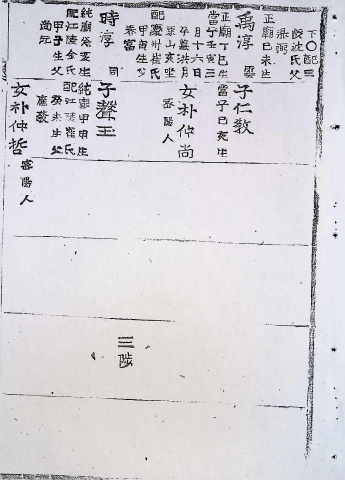 下○配三
陟沈氏父
正廟己未生
禹淳 雲
正廟丁巳生
當宁壬寅三
月十六日
卒葬洪月
東山亥坐
配慶州崔氏
甲寅生父
春富
時淳 同
純廟癸亥生
配江陵金氏
甲子生父
尚元
子仁敎
當宁己亥生
女朴仲尚
密陽人
子聲玉
純廟甲申生
配江陵崔氏
癸未生父
女朴仲哲 密陽人
三陟